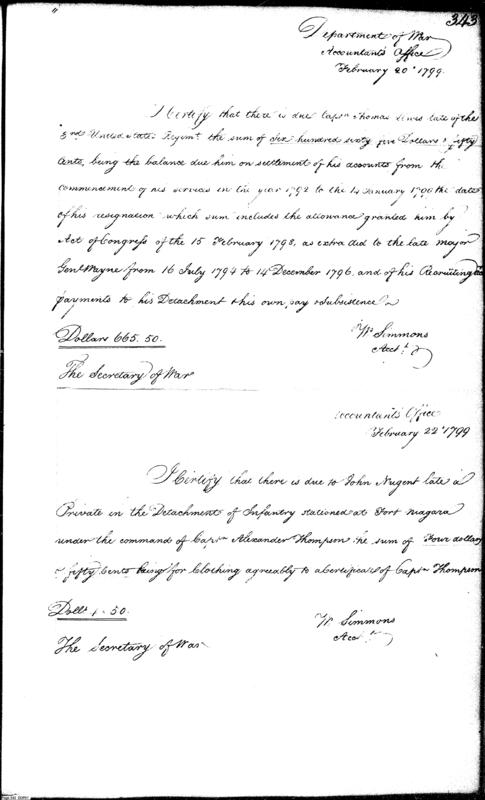 343
Department of War
Accountants Office
February 20th 1799.
I Certify that there is due Captn Thomas Lewis late of the
3rd United States Regimt the sum of Six hundred sixty five Dollars & fifty
Cents, being the balance due him on settlement of his accounts from the
commencement of his services in the year 1792 to the 14 January 1798 the date
of his resignation which sum includes the allowance granted him by
Act of Congress of the 15 February 1798, as extra aid to the late major
Genl Wayne from 16 July 1794 to 14 December 1796, and of his Recruiting
payments to his Detachment & his own pay & Subsistence
Dollars 665.50.
Wm Simmons
Acctt
The Secretary of War
Accountants Office
February 22d 1799
I Certify that there is due to John Nugent late a
Private in the Detachment of Infantry stationed at Fort Niagara
under the command of Captn Alexander Thompson the sum of Four dollars
& fifty Cents being for Clothing agreeably to a Certificate of Captn Thompson
Dolls 4.50.
W Simmons
Acctt
The Secretary of War